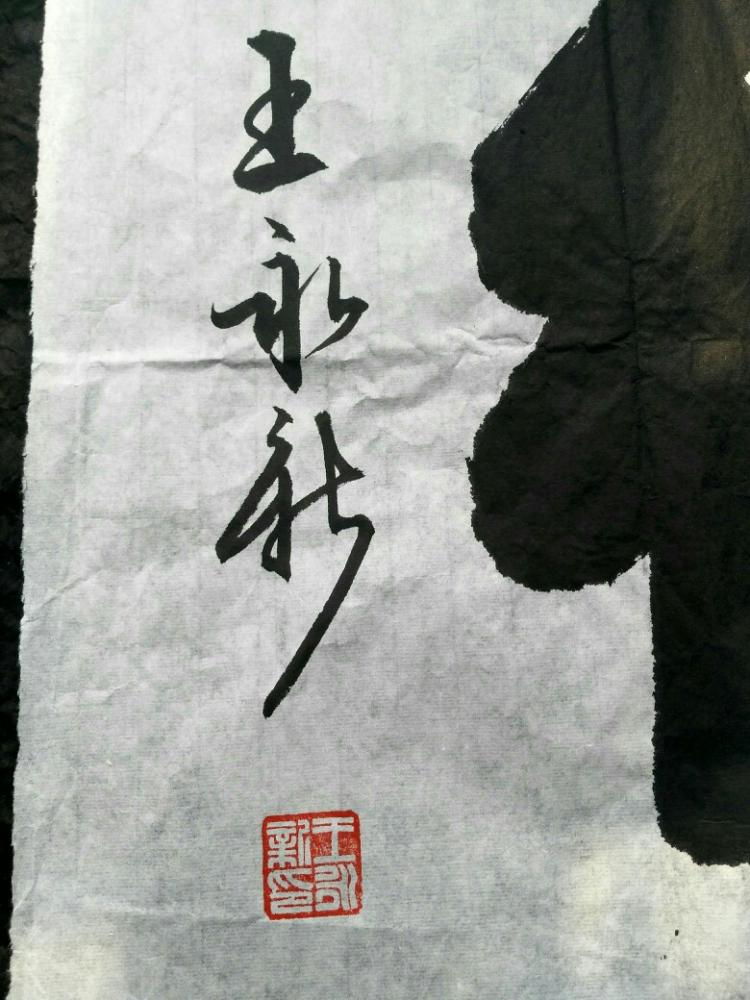 王永新
王永新印